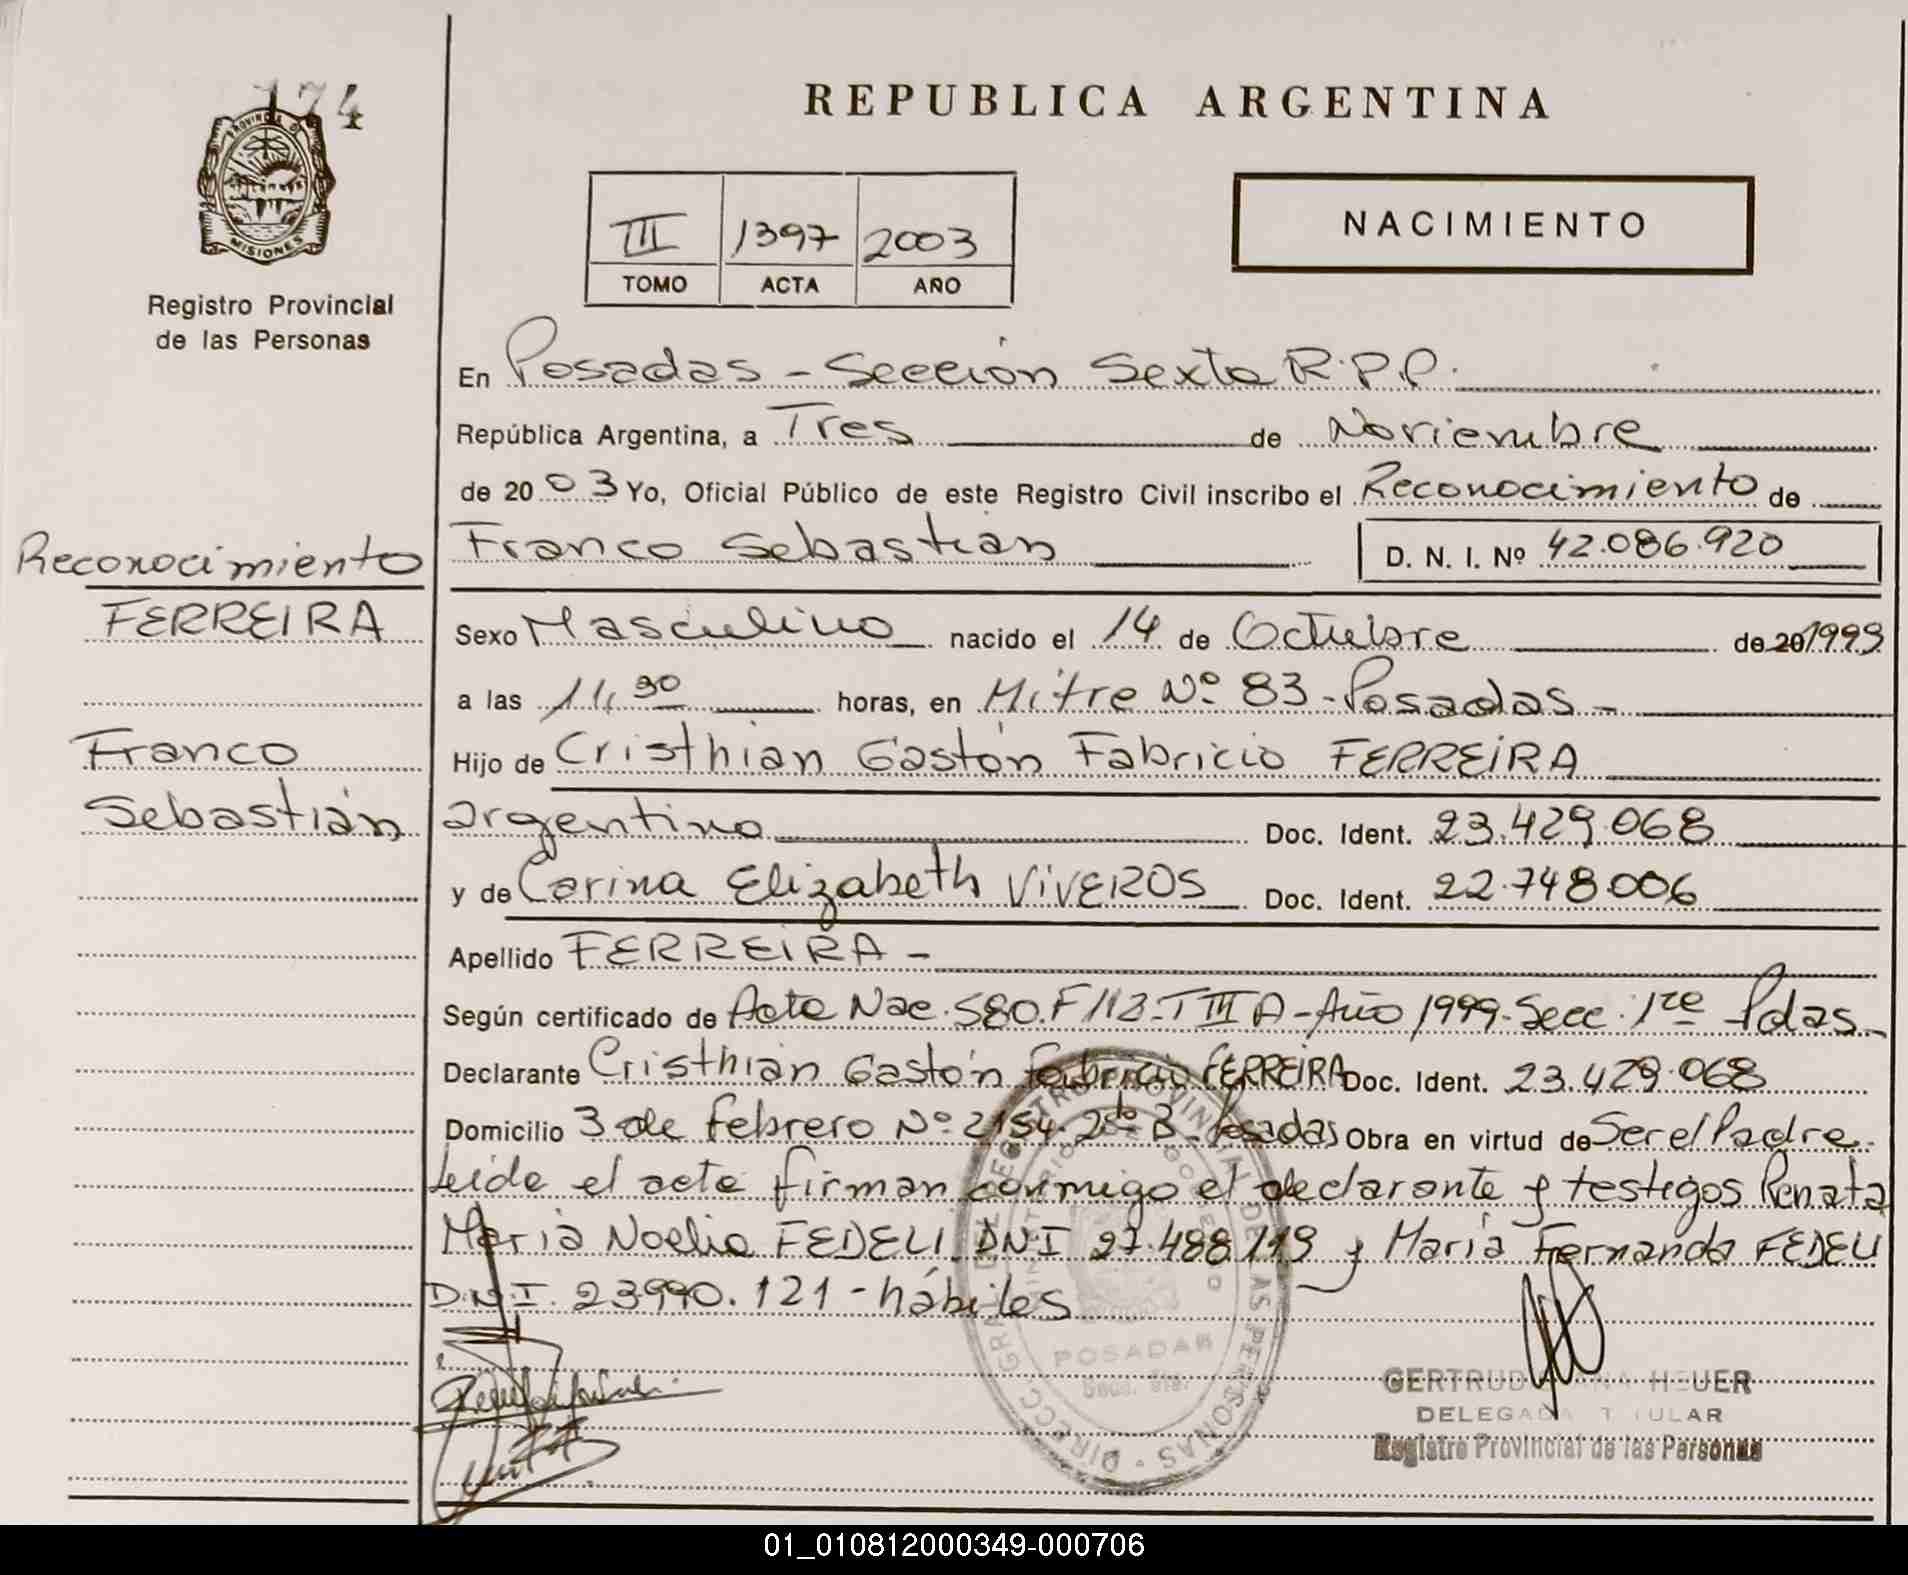 174
PROVINCIA D
MISIONES
Registro Provincial
de las Personas
REPUBLICA ARGENTINA
III 1397 2003
TOMO ACTA AÑO
NACIMIENTO
En Posadas - Sección Sexta R.P.P.
República Argentina, a Tres de Noviembre
de 20 03 Yo, Oficial Público de este Registro Civil inscribo el Reconocimiento de
Franco Sebastián D. N. I. Nº 42.086.920
Reconocimiento
FERREIRA
Franco
Sebastián
Sexo Masculino nacido el 14 de Octubre de 20 1999
a las 11,30 horas, en Mitre Nº 83 - Posadas -
Hijo de Cristhian Gastón Fabricio FERREIRA
argentino Doc. Ident. 23.429.068
y de Carina Elizabeth VIVEROS Doc. Ident. 22.748.006
Apellido FERREIRA -
Según certificado de Acta Nac. 580. F 113 - T III A - Año 1999 - Secc. 1re Pdas -
Declarante Cristhian Gastón Fabricio FERREIRA Doc. Ident. 23.429.068
Domicilio 3 de febrero Nº 2154 - 2do B - Posadas Obra en virtud de Ser el Padre -
Leída el acta firman conmigo el declarante y testigos Renata
María Noelia FEDELI DNI 27.488.119 y María Fernanda FEDELI
D.N.I. 23990.121 - hábiles
DIRECC. GRAL. DEL REGISTRO PROVINCIAL DE LAS PERSONAS
POSADAS
GERTRUD HEUER
DELEGADA TITULAR
Registro Provincial de las Personas
01_010812000349-000706